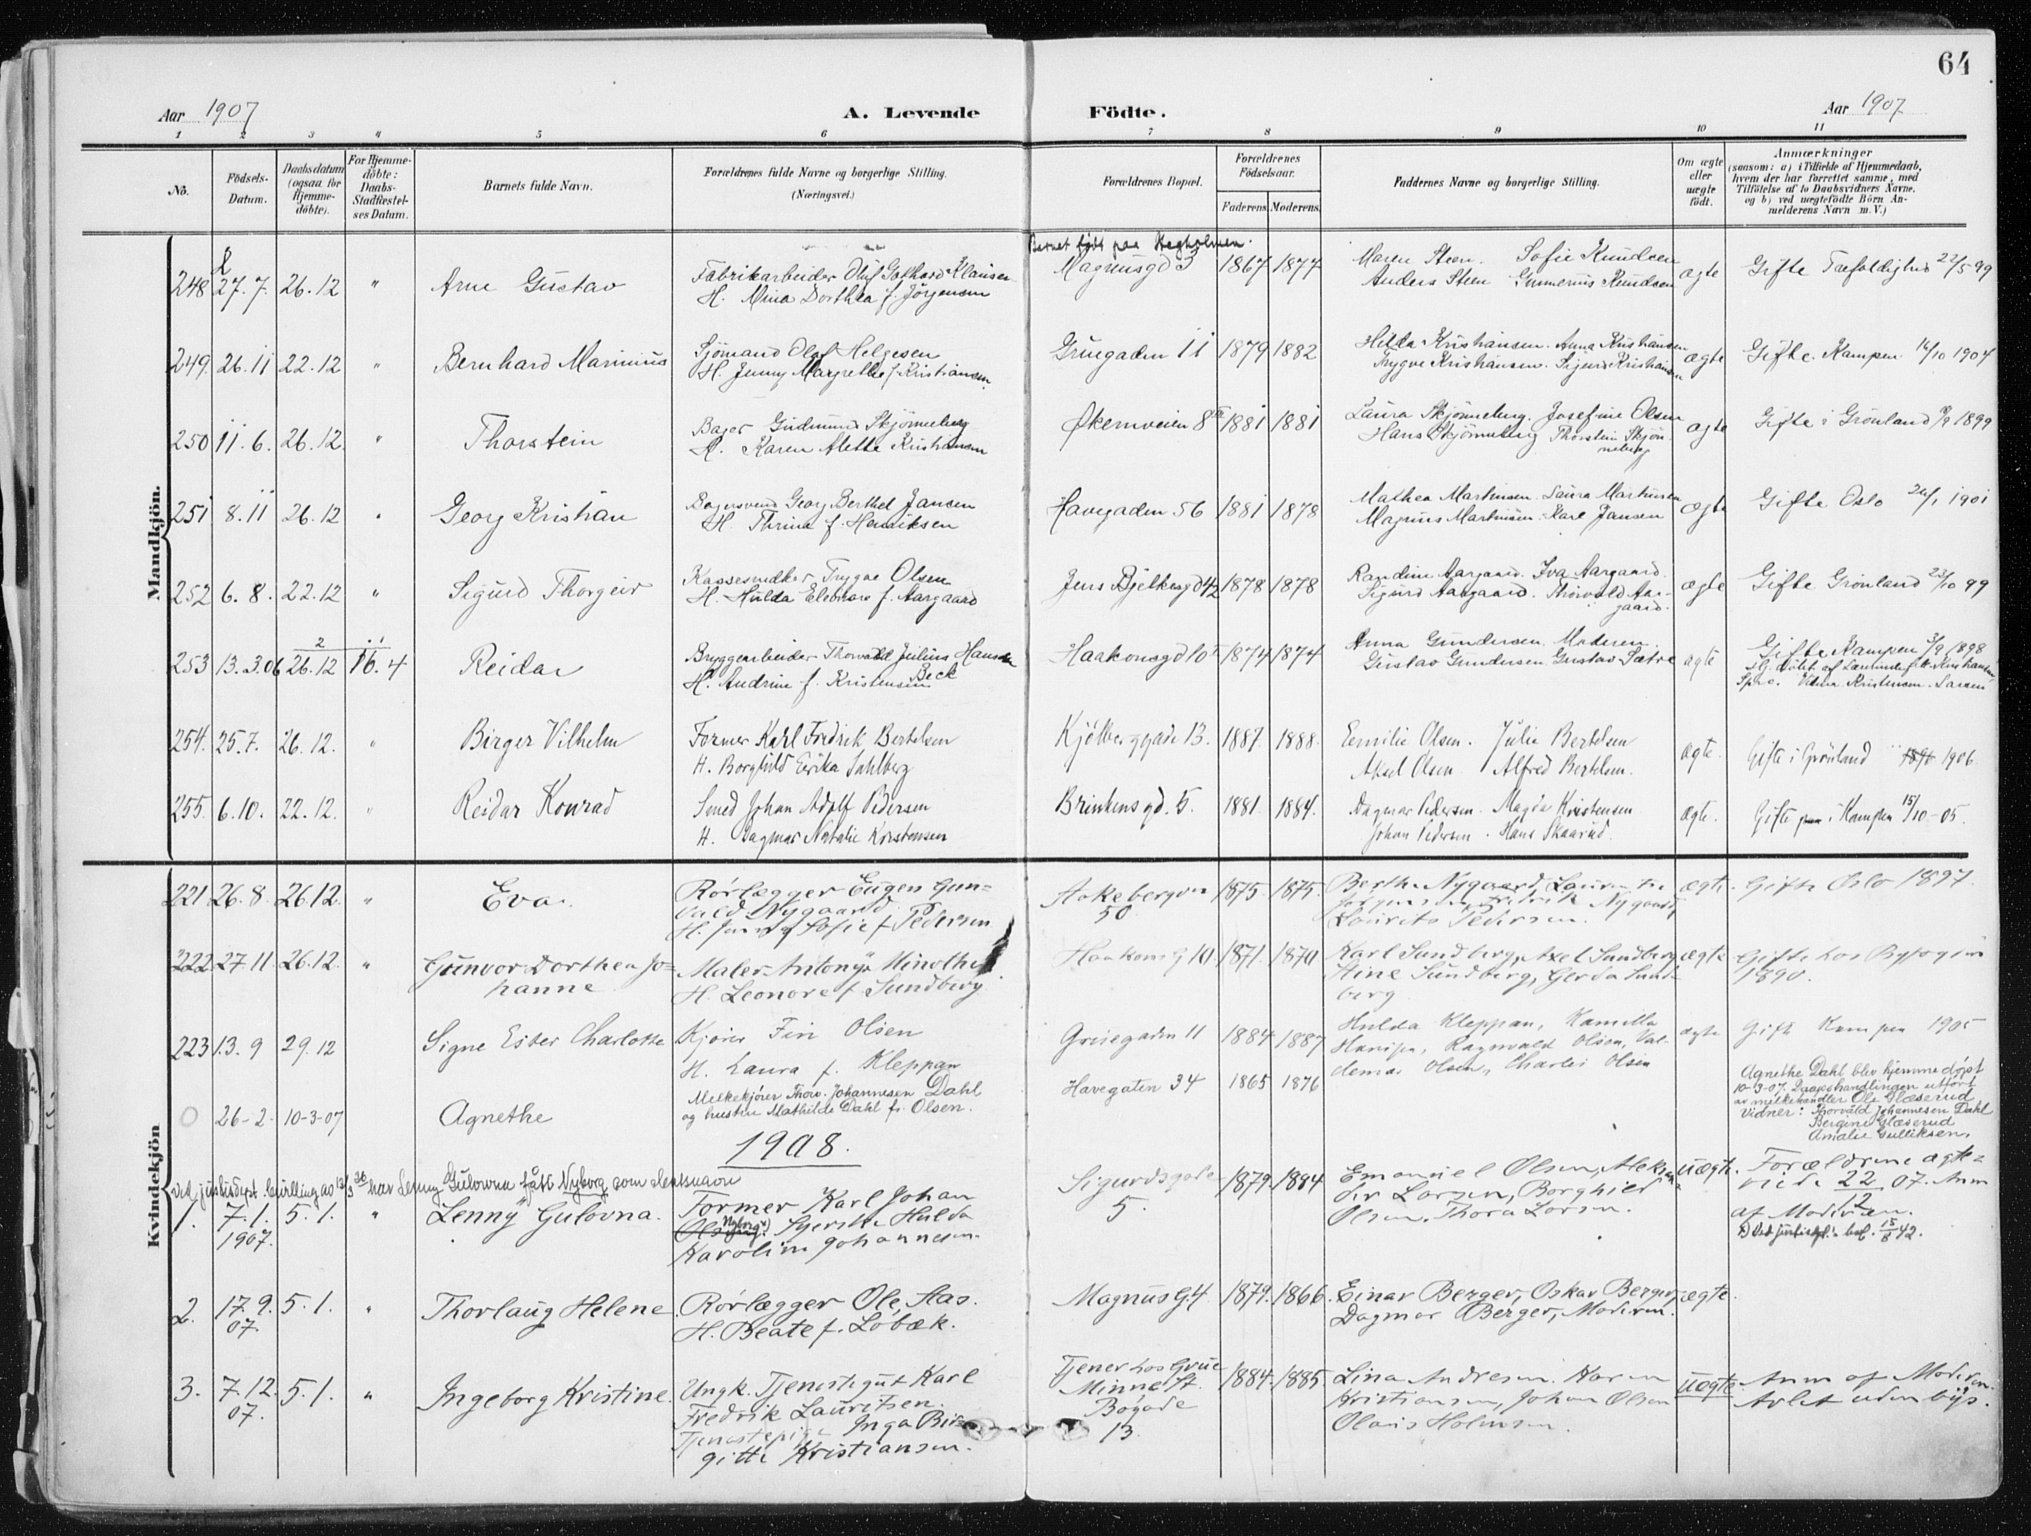 64
Aar 1907 A. Levende Födte. Aar 1907
1 2 3 „ 5 6 7 8 9 10 11
No. Födsels-Datum. Daabsdatum (ogsaa for Hjemmedöbte). For Hjemmedöbte: Daabs-Stadfæstelses Datum. Barnets fulde Navn. Forældrenes fulde Navne og borgerlige Stilling. (Næringsvei.) Forældrenes Bopæl. Forældrenes Födselsaar. Faderens. Moderens. Faddernes Navne og borgerlige Stilling. Om ægte eller uægte födt. Anmærkninger (saasom: a) i Tilfælde af Hjemmedaab, hvem der har forrettet samme, med Tilföielse af to Daabsvidners Navne, og b) ved uægtefödte Börn Anmelderens Navn m. V.)
Mandkjön.
Barnet født paa
248 27.7. 26.12 " Arne Gustav Fabrikarbeider Oluf Gothard Klausen Magnusgd 3 1867 1877 Maren Steen. Sofie Knudsen ægte Gifte Trefoldighed 22/5 99
H. Mina Dorthea f. Jörgensen Anders Steen Gunnerius Knudsen
249. 26.11 22.12 " Bernhard Marinius Sjömand Olaf Helgesen Gruegaden 11 1879 1882 Hilda Kristiansen. Anna Kristiansen ægte Gifte. Kampen 16/10 1904
H. Jenny Margrethe f Kristiansen. Trygve Kristiansen. Sigurd Kristiansen
250 11.6. 26.12. " Thorstein Bager Gudmund Skjönneberg Økernveien 8 1881 1881 Laura Skjönneberg. Josefine Olsen ægte Gifte i Grönland 1899
H. Karen Alette Kristiansen Hans Skjönneberg Thorstein Skjönneberg
251 8.11 26.12 " Georg Kristian Bagersvend Georg Berthel Jansen Havegaden 56 1881 1878 Mathea Martinsen. Laura Martinsen ægte Gifte Oslo 26/1 1901
H. Thrine f. Henriksen Magnus Martinsen. Karl Jansen
252 6.8. 22.12 " Sigurd Thorgeir Kassesnedker Trygve Olsen Jens Bjelkesgd 42 1878 1878 Randine Aargaard. Eva Aargaard. ægte Gifte Grönland 23/10 99
H. Hulda Eleonore f. Aargaard Sigurd Aargaard. Thorvald Aargaard.
253 13.3.06 26.12 16.4 Reidar Bryggearbeider Thorvald Julius Hansen Haakonsgd 10 1874 1874 Anna Gundersen. Moderen. ægte Gifte Kampen 3/9 1898
H. Andrine f. Kristensen Beck Gustav Gundersen Gustav Sætre
254. 25.7. 26.12. " Birger Vilhelm Former Karl Fredrik Bertelsen Kjölberggade 13. 1887. 1888. Emilie Olsen. Julie Bertelsen ægte. Gifte i Grönland 1906
H. Borghild Erika Sahlberg Aksel Olsen. Alfred Bertelsen.
255. 6.10. 22.12. " Reidar Konrad Smed Johan Adolf Pedersen Brinkensgd. 5. 1881. 1884. Dagmar Pedersen. Magda Kristensen ægte. Gifte i Kampen 15/10-05.
H. Dagmar Natalie Kristensen Johan Pedersen. Hans Skaarud.
Kvindekjön
221 26.8. 26.12. " Eva. Rörlægger Eugen Gun= Aakebergvn 50 1875. 1875. Berthe Nygaard, ægte. Gifte Oslo 1897.
vald Nygaard Fredrik Nygaard,
H. Jenny Sofie f. Pedersen Laurits Pedersen.
222. 27.11 26.12. " Gunvor Dorthea Jo= Maler Antonio Haakonsg 10. 1871. 1870 Karl Sundberg, Axel Sundberg ægte Gifte hos Byfogden
hanne H. Leonore f. Sundberg Stine Sundberg, Gerda Sundberg 1890.
223 13.9 29.12 Signe Ester Charlotte Kjörer Finn Olsen Gruegaden 11 1884. 1887 Hulda Kleppan, Kamilla ægte Gift Kampen 1905
H. Laura f. Kleppan Ragnvald Olsen, Valdemar Olsen, Charles Olsen
26-2. 10-3-07 Agnethe Melkekjörer Thorv. Johannesen Dahl Havegaten 34 1865 1876 Agnethe Dahl blev hjemmedøpt
og hustru Mathilde Dahl fr. Olsen. 10-3-07. Daapshandlingen utført
av melkehandler Ole Glæserud
Vidner: Thorvald Johannesen Dahl
Bergine Glæserud
Amalie Gulliksen.
1908.
Ved justisdept. bevilling av har Jenny Gulovna fått Nyborg som slektsnavn
1. 7.1. 1907. 5.1. " Jenny Gulovna. Former Karl Johan Sigurdsgade 5. 1879. 1884 Emanuel Olsen, Aleksan= uægte. Forældrene ægte=
Nyborg Syerske Hulda der Larsen, Borghild viede 22/12 07. Anm
Karoline Johannesen. Olsen, Thora Larsen. af Moderen.
2. 17.9. 07. 5.1. " Thorlaug Helene. Rörlægger Ole Aas. Magnus G. 4 1879. 1866. Einar Berger, Oskar Berger, ægte.
H. Beate f. Lobæk. Dagmar Berger, Moderen.
3. 7.12. 07. 5.1. " Ingeborg Kristine. Ungk. Tjenestegut Karl Tjener hos Grue 1884. 1885. Lina Andresen. Karen uægte Anm af Moderen.
Fredrik Lauritsen. Minne St. Kristiansen, Johan Olsen Avlet udenbys.
Tjenestepige Inga Bir= Bogade Olais Holmsen.
gitte Kristiansen. 13.